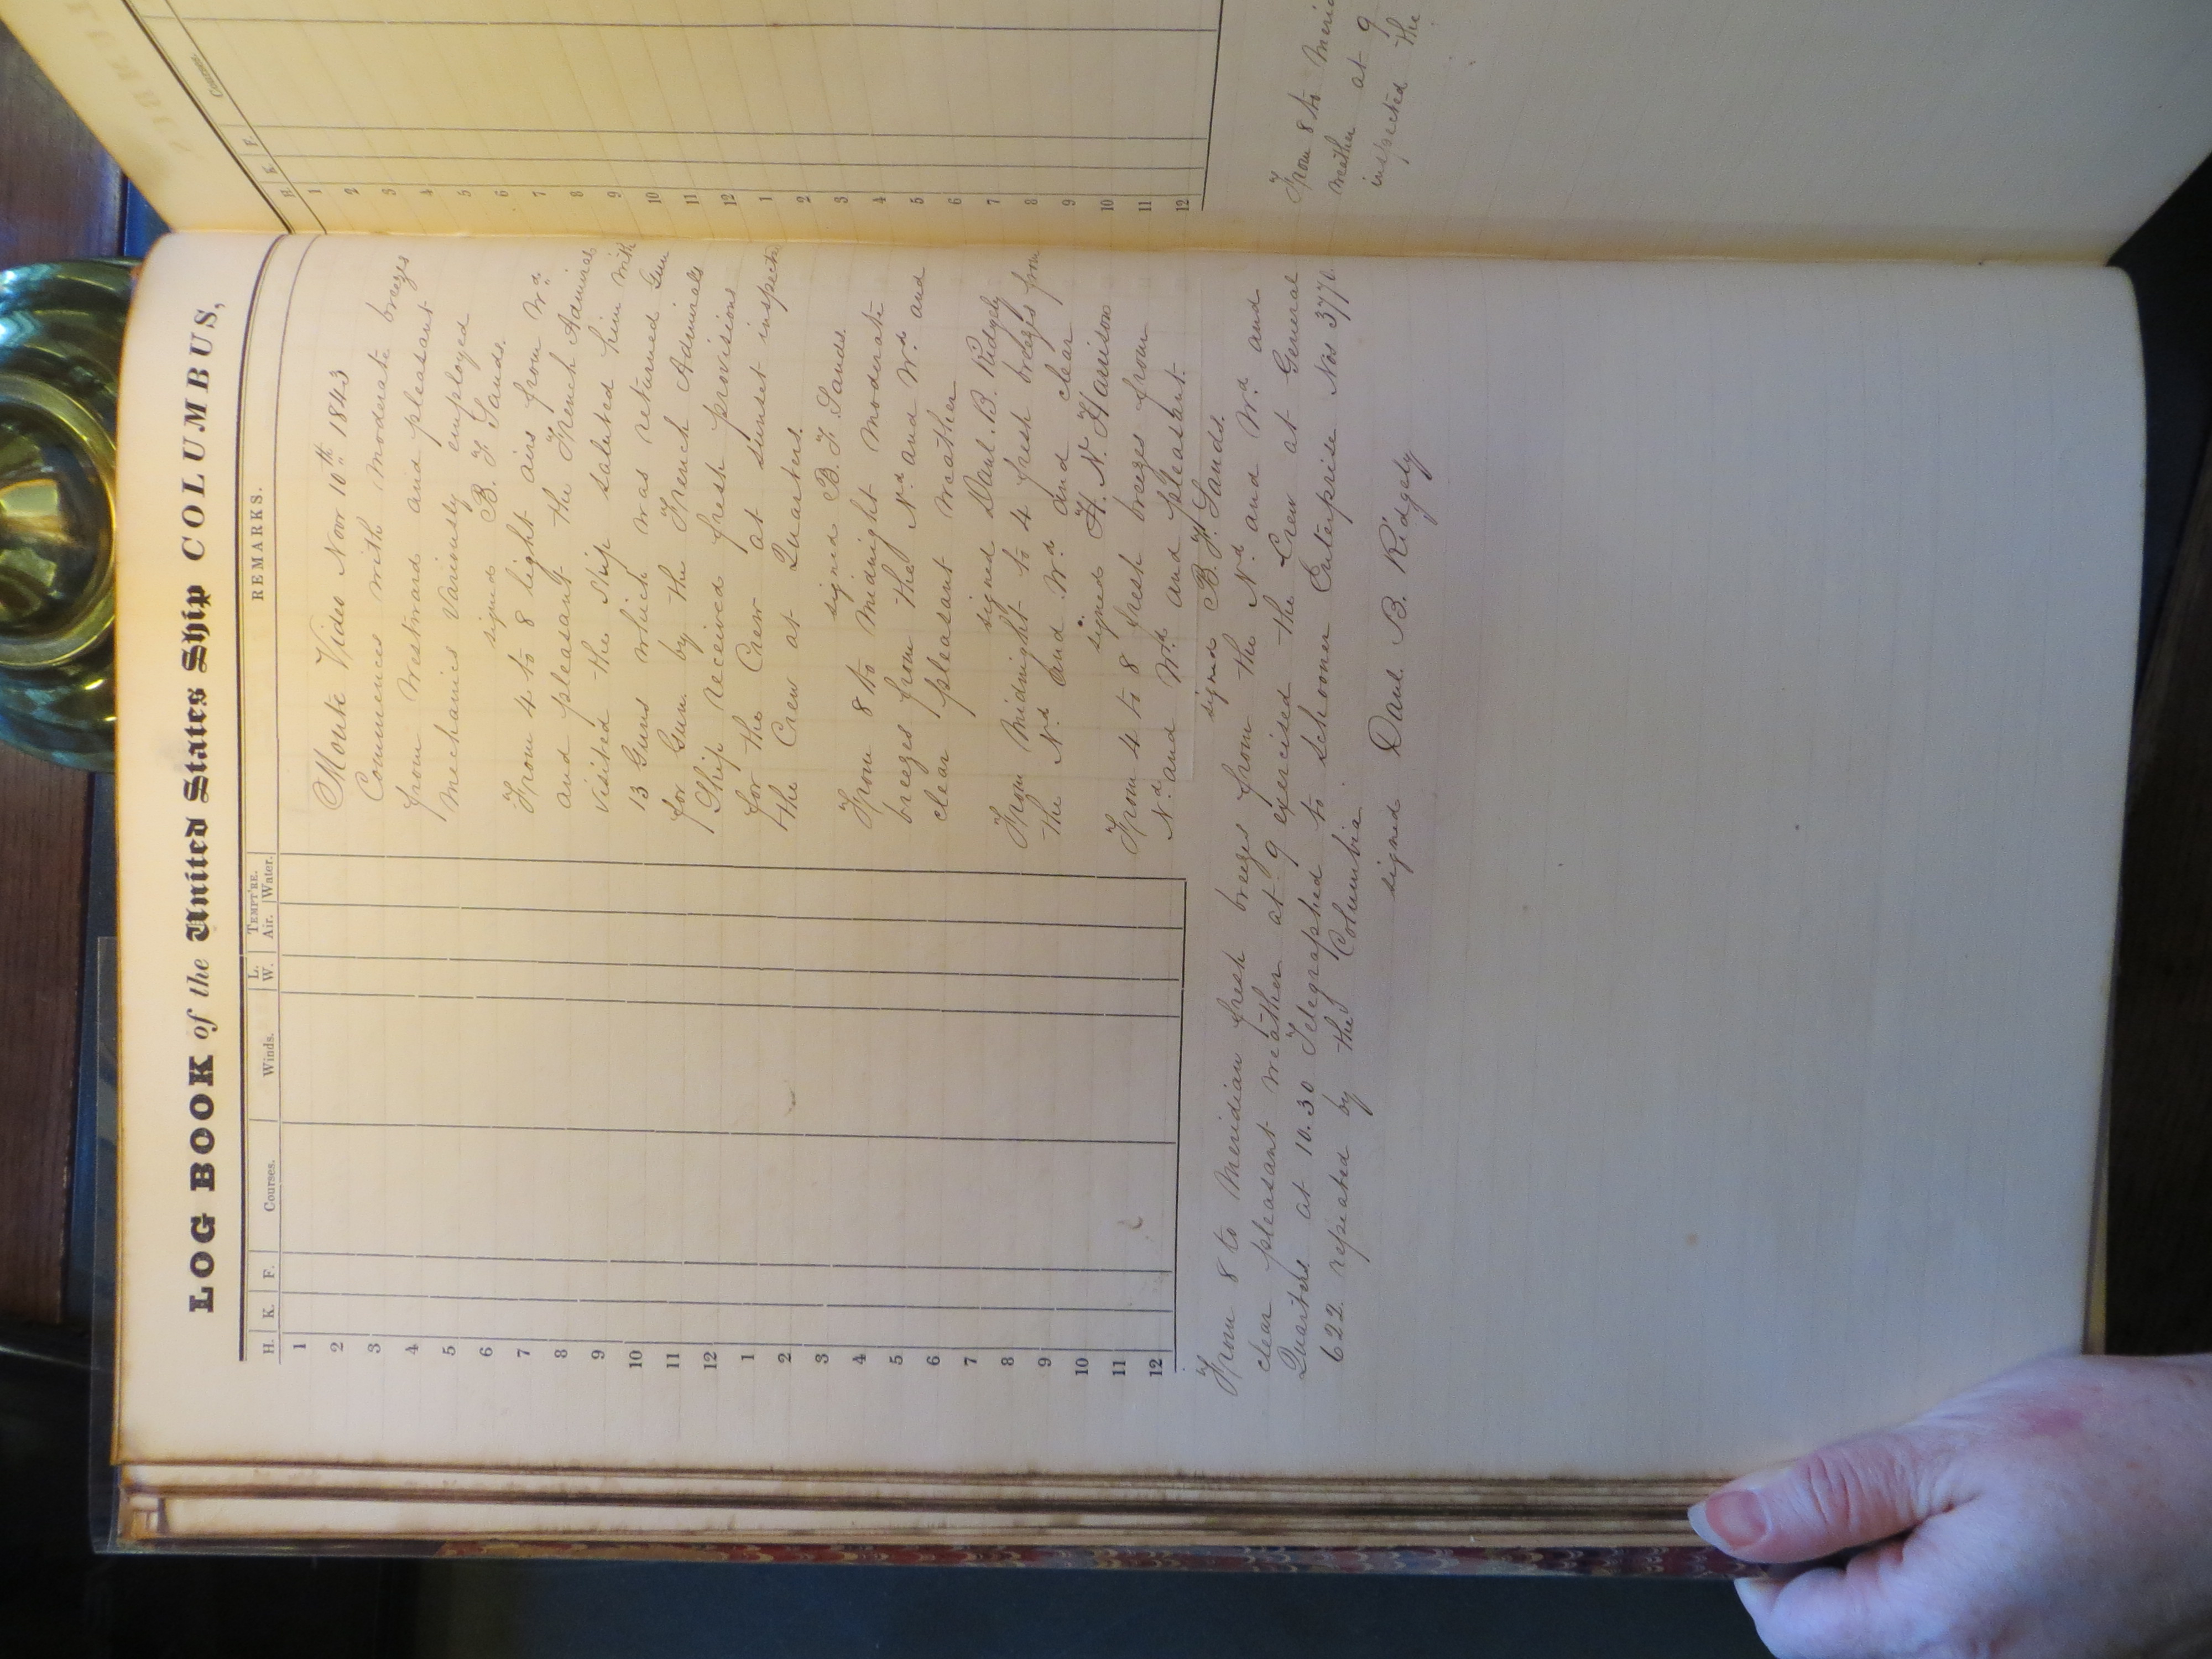 LOG BOOK of the United States Ship COLUMBUS,
H. K. F. Courses. Winds. L. W. TEMPT'RE. Air. Water. REMARKS.
1
2
3
4
5
6
7
8
9
10
11
12
1
2
3
4
5
6
7
8
9
10
11
12
Monte Video Novr 10th 1843
Commences with Moderate breezes
from Westward and pleasant
Mechanics Variously employed
signed B. F. Sands.
From 4 to 8 light airs from Wd
and pleasant the French Admiral
visited the Ship saluted him with
13 Guns which was returned Gun
for Gun by the French Admirals
Ship received fresh provisions
for the Crew at sunset inspected
the Crew at Quarters.
signed B. F. Sands.
From 8 to Midnight Moderate
breezes from the Nd and Wd and
clear pleasant weather
signed Danl. B. Ridgely
From Midnight to 4 fresh breezes from
the Nd and Wd and clear
signed H. N. Harrison
From 4 to 8 fresh breezes from
Nd and Wd and pleasant.
signed B. F. Sands.
From 8 to Meridian fresh breezes from the Nd and Wd and
clear pleasant weather at 9 exercised the Crew at General
Quarters at 10.30 Telegraphed to Schooner Enterprise Nos
622 repeated by the Columbia.
signed Danl B. Ridgely
H. K. F. Courses.
1
2
3
4
5
6
7
8
9
10
11
12
1
2
3
4
5
6
7
8
9
10
11
12
From 8 to
weather at 9
inspected the